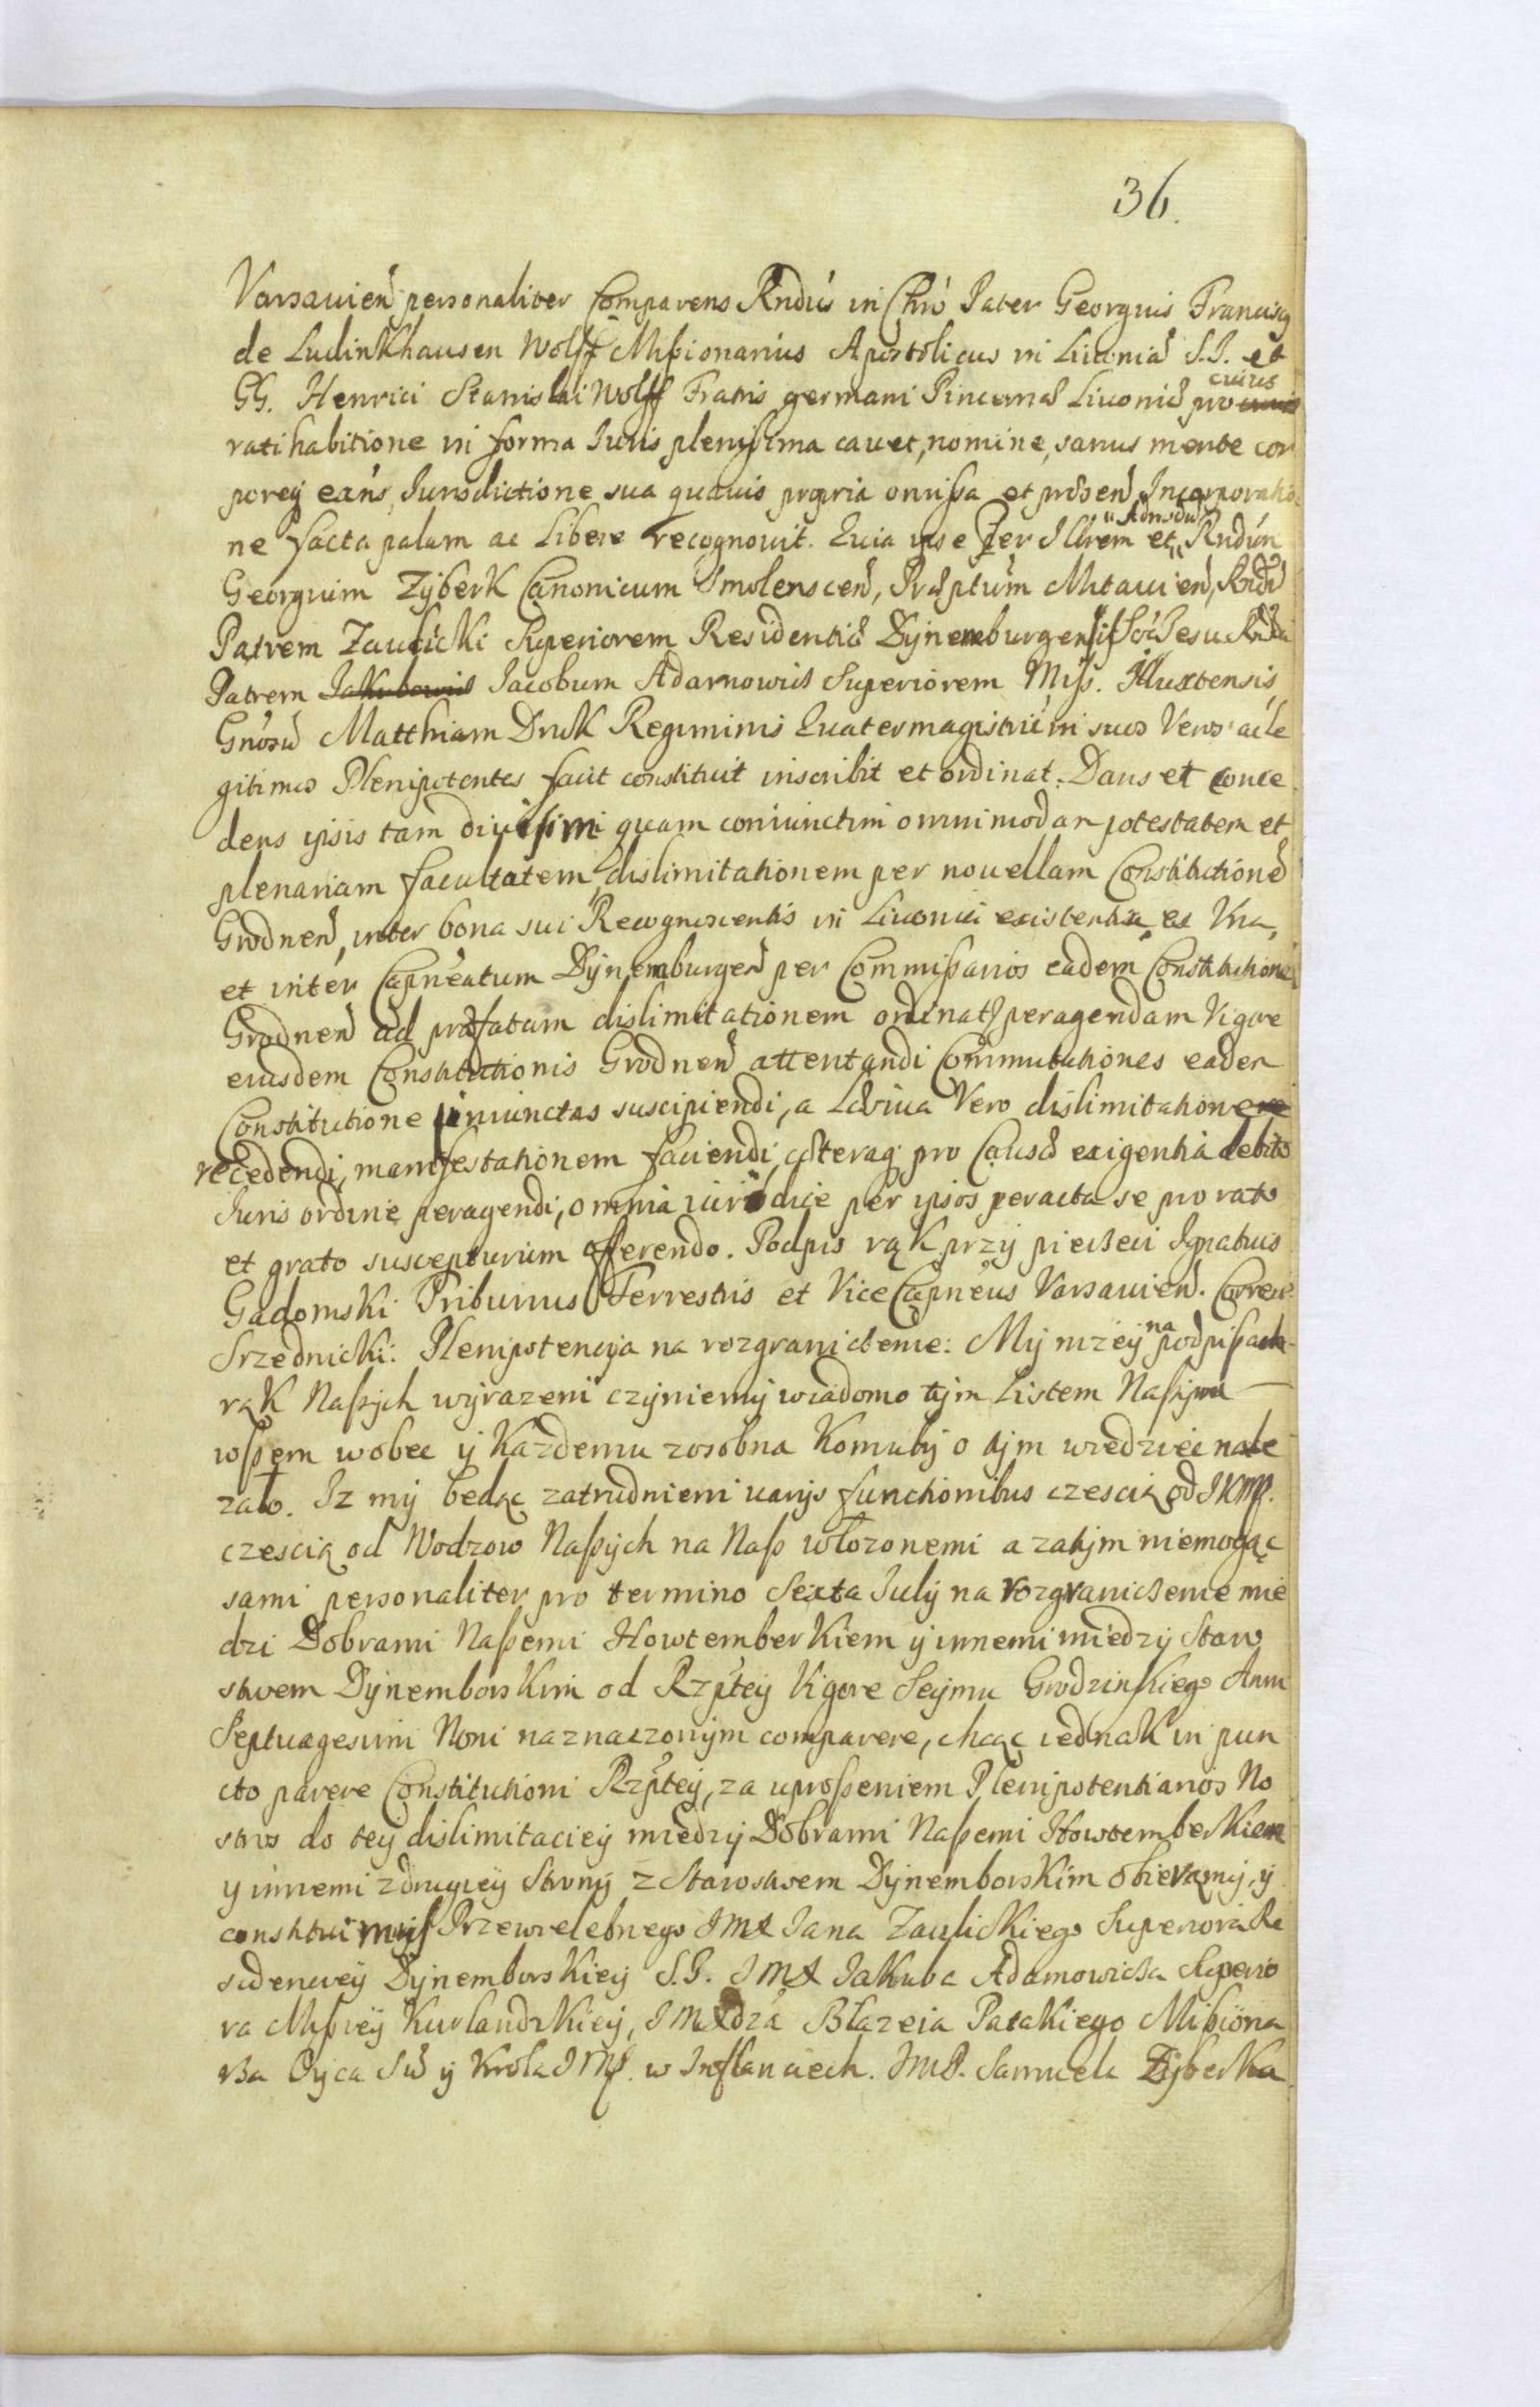 36.
Varsauień personaliter Comparens Rndús in Chró Pater Georgius Franciscꝫ
de Ludinkhausen Wolff Mißionarius Apostolicus in Liuonia S.I. et
GG. Henrici Stanislai Wolff Fratris germani Pincernæ Liuoniæ pro cuius
ratihabitione in forma Iuris plenißima cauet, nomine, sanus mente cor
poreq exńs, Iurisdictione sua quauis propria omißa et præsenti Incorporatio
ne facta palam ac Libere recognouit. Quia ipse Per Illrem et Admodu Rndún
Georgium Zyberk Canonicum Smolenscen, Præptum Mitauien, Rndū
Patrem Zaulicki Superiorem Residentiæ Dynemburgensis Soć Iesu Rndū
Patrem Jakubowić Iacobum Adamowicz Superiorem Miß. Illuxtensis
Gnosū Matthiam Druk Regiminis Quatermagistrū in suos Veros ac le
gitimos Plenipotentes facit constituit inscribit et ordinat. Dans et conce
dens ipsis tam diuisim quam coniunctim omnimodam potestatem et
plenariam facultatem, dislimitationem per nouellam Constitutionē
Grodnen, inter bona sui Recognoscentis in Liuonia existentia ex Vna,
et inter Capneatum Dynemburgen per Commißarios eadem Constitutione
Grodnen ad præfatam dislimitationem ordinatos peragendam Vigore
eiusdem Constitutionis Grodnen attentandi Commutationes eadem
Constitutione iniunctas suscipiendi, a Vero dislimitatione
recedendi, manifestationem faciendi, cæteraq pro Causæ exigentia debito
Iuris ordine peragendi, omnia iuridice per ipsos peracta se pro rato
et grato suscepturum offerendo. Podpis rąk przy pieczeci Ignatius
Gadomski Tribunus Terrestris et Vice Capneus Varsauien. Correx
Srzednicki: Plenipotencya na rozgraniczenie: My nizey na podpisach
rąk Naßych wyrazeni czyniemy wiadomo tym Listem Naßym
wßem wobec y kazdemu zosobna komuby o tym wiedziec nale
zało. Iz my będąc zatrudnieni uarijs functionibus czescią od IKM.
czescią od Wodzow Naßych na Naß włozonemi a zatym niemogąc
sami personaliter pro termino Sexta Iuly na rozgraniczenie mie
dzi Dobrami Naßemi Howtemberkiem y innemi miedzy Staro
stwem Dynemborskim od Rzptey Vigore Seymu Grodzinskiego Anni
Septuagesimi Noni naznaczonym comparere, chcąc iednak in pun
cto parere Constitutioni Rzptey, za uproßeniem Plenipotentiarios No
stros do tey dislimitaciey miedzy Dobrami Naßemi Howtemberkiem
y innemi z drugiey Strony z Starostwem Dynemborskim obieramy, y
constituimus Przewielebnego IMX Iana Zaulickiego Superiora Re
sidencyey Dynemborskiey S.I. IMX Iakuba Adamowicza Superio
ra Mißiey Kurlandzkiey, IMXdza Błazeia Patakiego Mißiona
rza Oyca Sw y Krola IM. w Inflanciech. IMP. Samuela Zyberka